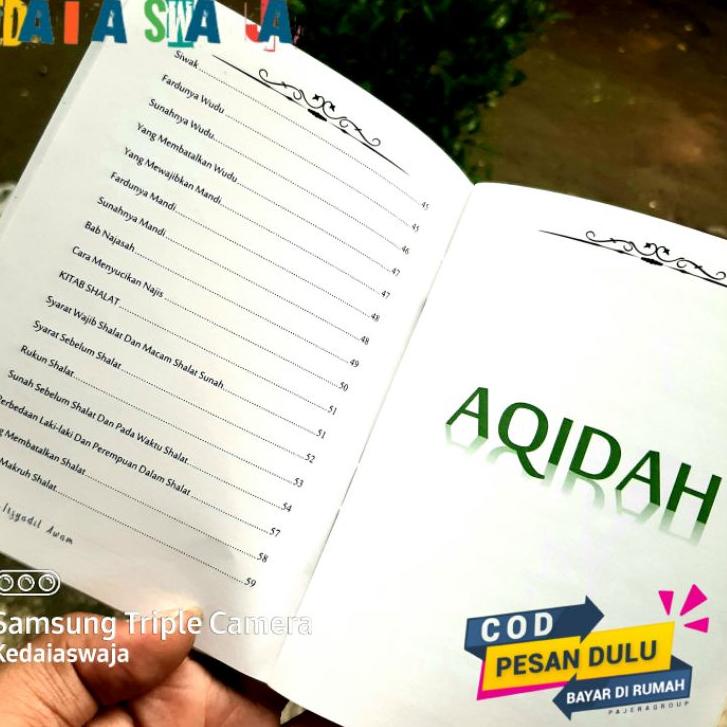 DAIASWAJA
Siwak 45
Fardunya Wudu 45
Sunahnya Wudu 46
Yang Membatalkan Wudu 47
Yang Mewajibkan Mandi 47
Fardunya Mandi 48
Sunahnya Mandi 48
Bab Najasah 49
Cara Menyucikan Najis 50
KITAB SHALAT 51
Syarat Wajib Shalat Dan Macam Shalat Sunah 51
Syarat Sebelum Shalat 52
Rukun Shalat 53
Sunah Sebelum Shalat Dan Pada Waktu Shalat 54
erbedaan Laki-laki Dan Perempuan Dalam Shalat 57
g Membatalkan Shalat 58
Makruh Shalat 59
Irsyadil Awam
AQIDAH
Samsung Triple Camera
Kedaiaswaja
COD
PESAN DULU
BAYAR DI RUMAH
PAJERAGROUP